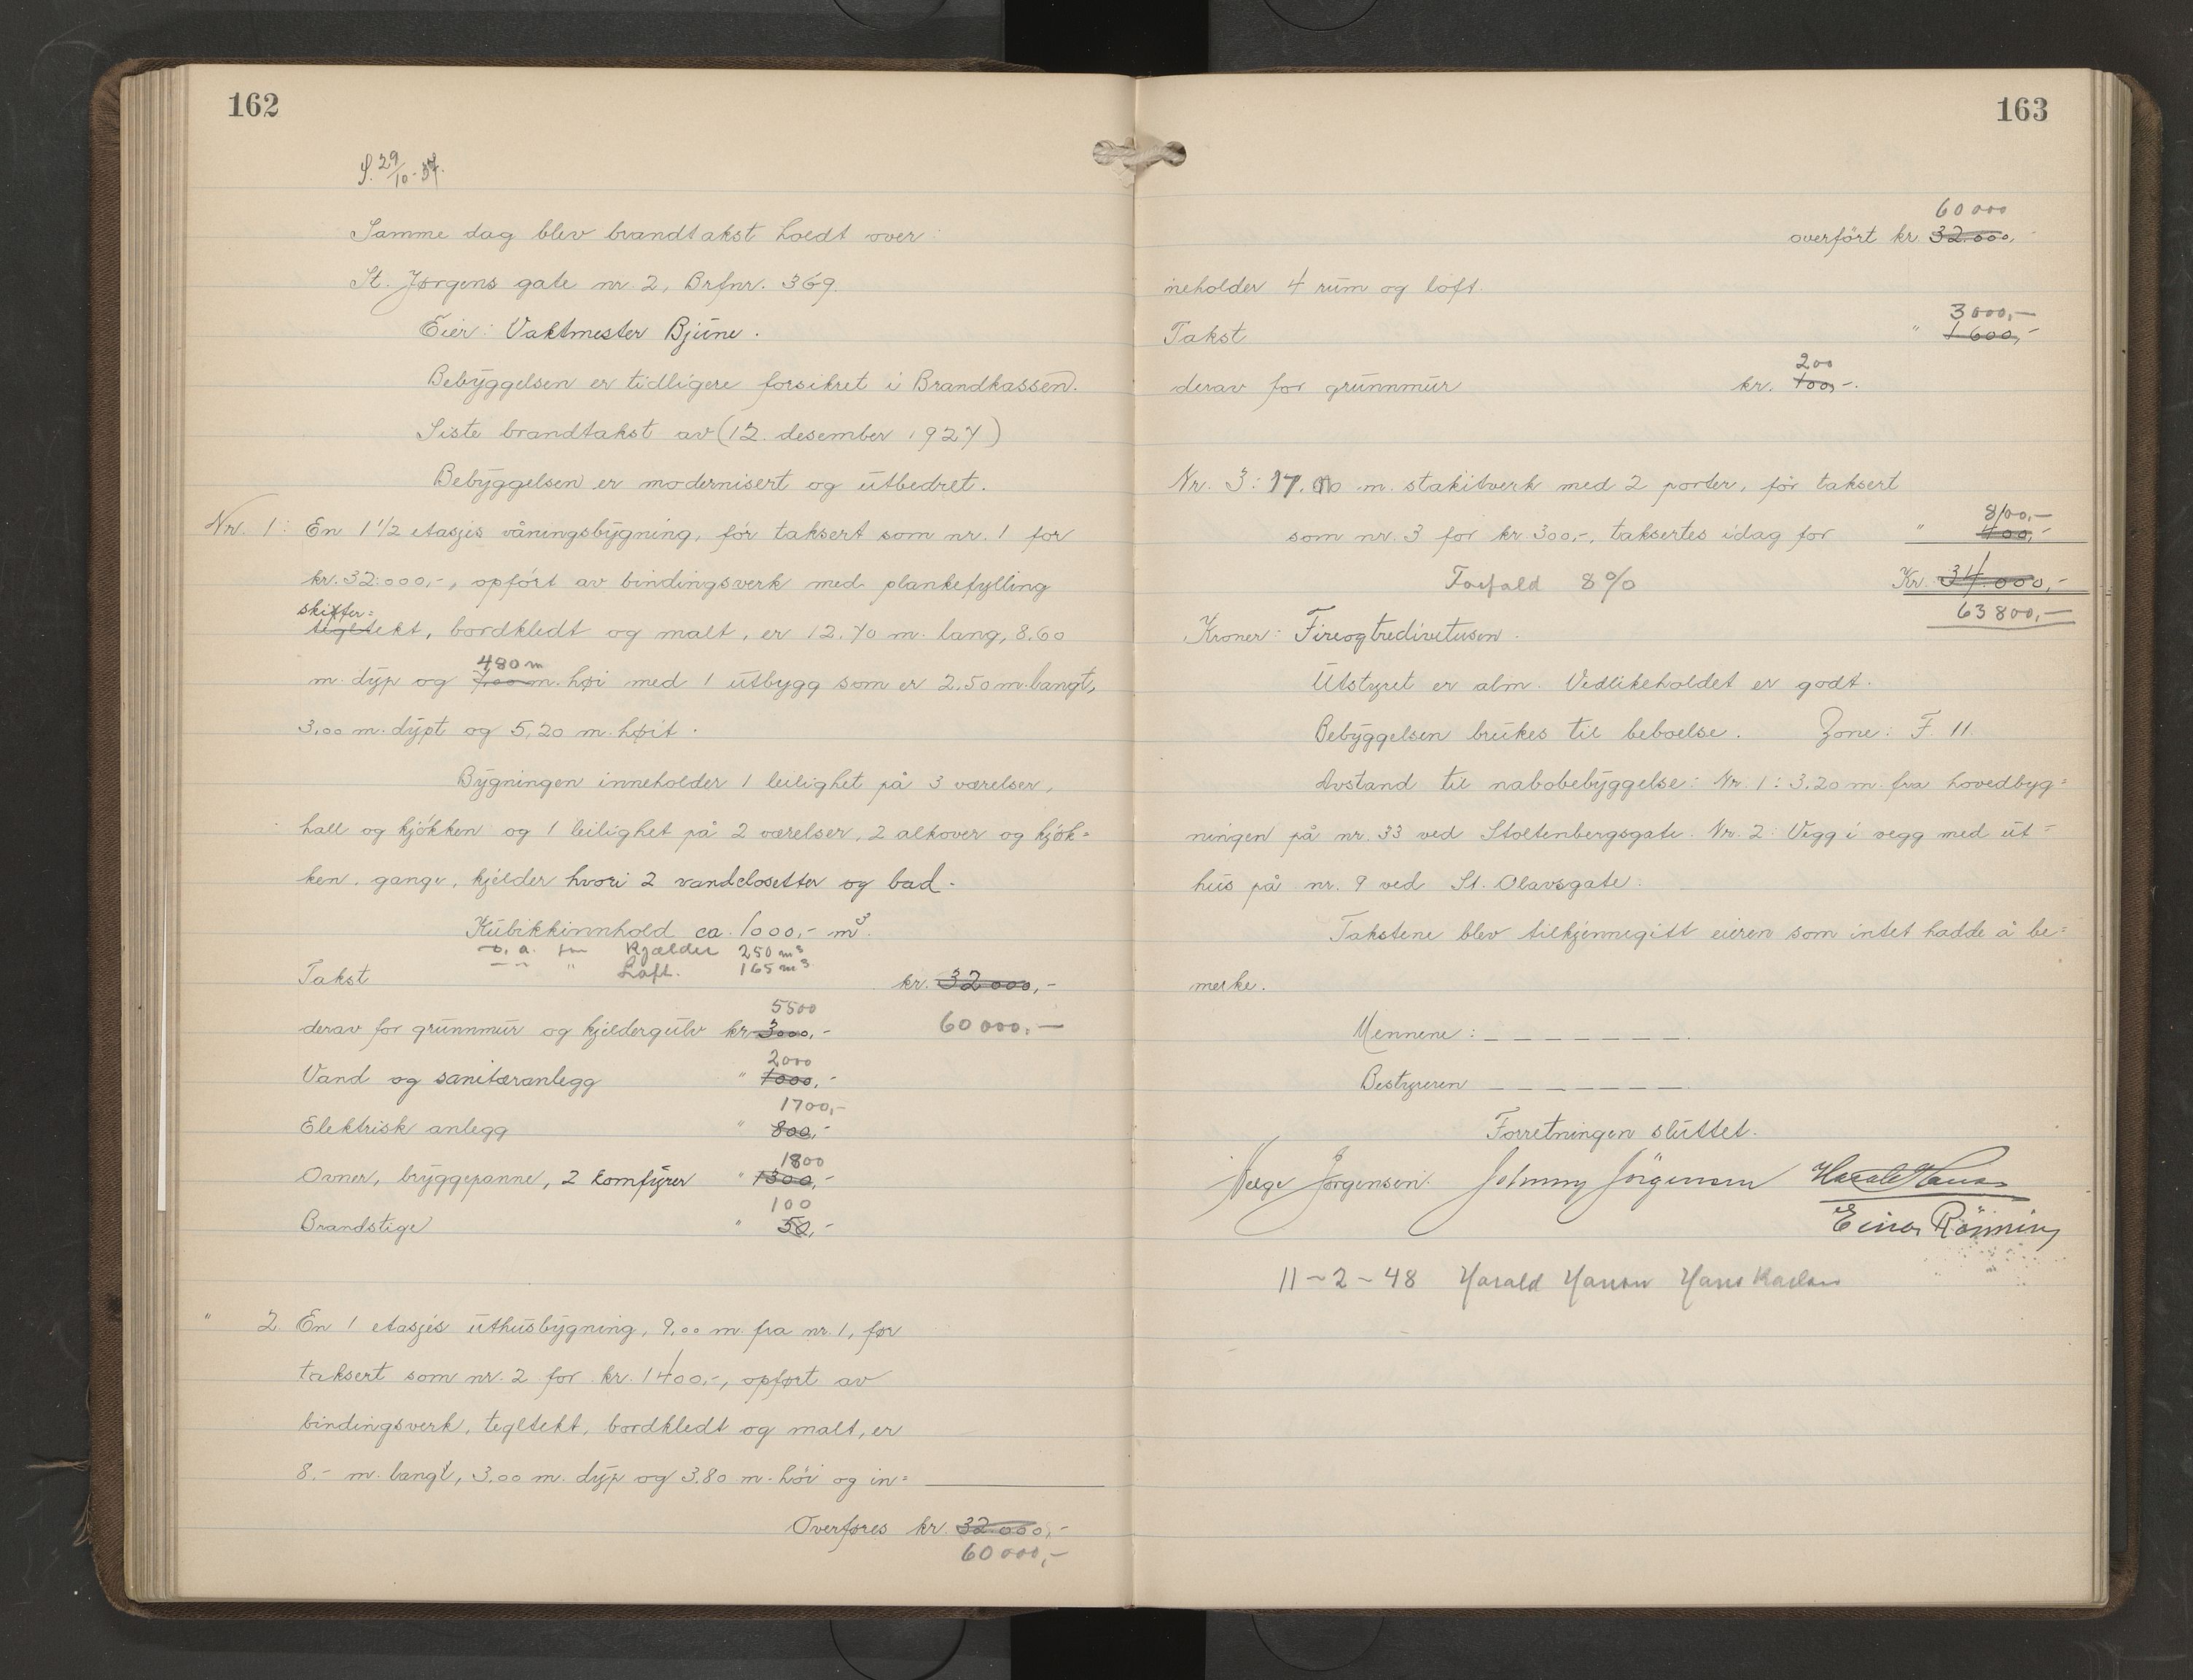 162
S. 29/10-37.
Samme dag blev brandtakst holdt over:
St. Jørgens gate nr. 2, Brfnr. 369.
Eier: Vaktmester Bjune.
Bebyggelsen er tidligere forsikret i Brandkassen.
Siste brandtakst av (12. desember 1927)
Bebyggelsen er modernisert og utbedret.
Nr. 1: En 1 1/2 etasjes våningsbygning, før taksert som nr. 1 for
kr. 32.000,-, opført av bindingsverk med plankefylling
skiffer=
tegltekt, bordkledt og malt, er 12.70 m. lang, 8.60
480 m
m. dyp og 7.00 m. høi med 1 utbygg som er 2,50 m. langt,
3,00 m. dypt og 5,20 m. høit.
Bygningen inneholder 1 leilighet på 3 værelser,
hall og kjøkken og 1 leilighet på 2 værelser, 2 alkover og kjøk=
ken, gange, kjelder hvori 2 vandclosetter og bad.
Kubikkinnhold ca. 1000,- m³.
Kjælder 250 m³
" Loft. 165 m³
Takst kr. 32000,-
5500
derav for grunnmur og kjeldergulv kr. 3000,- 60000,-
2000
Vand og sanitæranlegg " 1000,-
1700,-
Elektrisk anlegg " 800,-
1800
Ovner, bryggepanne, 2 komfyrer " 1300,-
100
Brandstige " 50,-
" 2. En 1 etasjes uthusbygning, 9,00 m. fra nr. 1, før
taksert som nr. 2 for kr. 1400,-, opført av
bindingsverk, tegltekt, bordkledt og malt, er
8.- m. langt, 3,00 m. dyp og 3.80 m. høi og in=
Overføres kr. 32.000,-
60000,-
163
60000
overført kr. 32.000,-
neholder 4 rum og loft.
3000,-
Takst " 1600,-
200
derav for grunnmur kr. 100,-.
Nr. 3: 17.00 m. stakitverk med 2 porter, før taksert
800,-
som nr. 3 for kr. 300,-, taksertes idag for " 400,-
Forfald 8% Kr. 34.000,-
63800,-
Kroner: Fireogtredivetusen.
Utstyret er alm. Vedlikeholdet er godt.
Bebyggelsen brukes til beboelse. Zone: F. 11.
Avstand til nabobebyggelse: Nr. 1: 3,20 m. fra hovedbyg=
ningen på nr. 33 ved Stoltenbergsgate. Nr. 2: Vegg i vegg med ut=
hus på nr. 9 ved St. Olavsgate.
Takstene blev tilkjennegitt eieren som intet hadde å be=
merke.
Mennene: _ _ _ _ _ _ _.
Bestyreren _ _ _ _ _ _ _.
Forretningen sluttet.
Helge Jørgensen. Johnny Jörgensen Harald Hanson
Einar Rönning
11-2-48 Harald Hanson Hans Karlsen